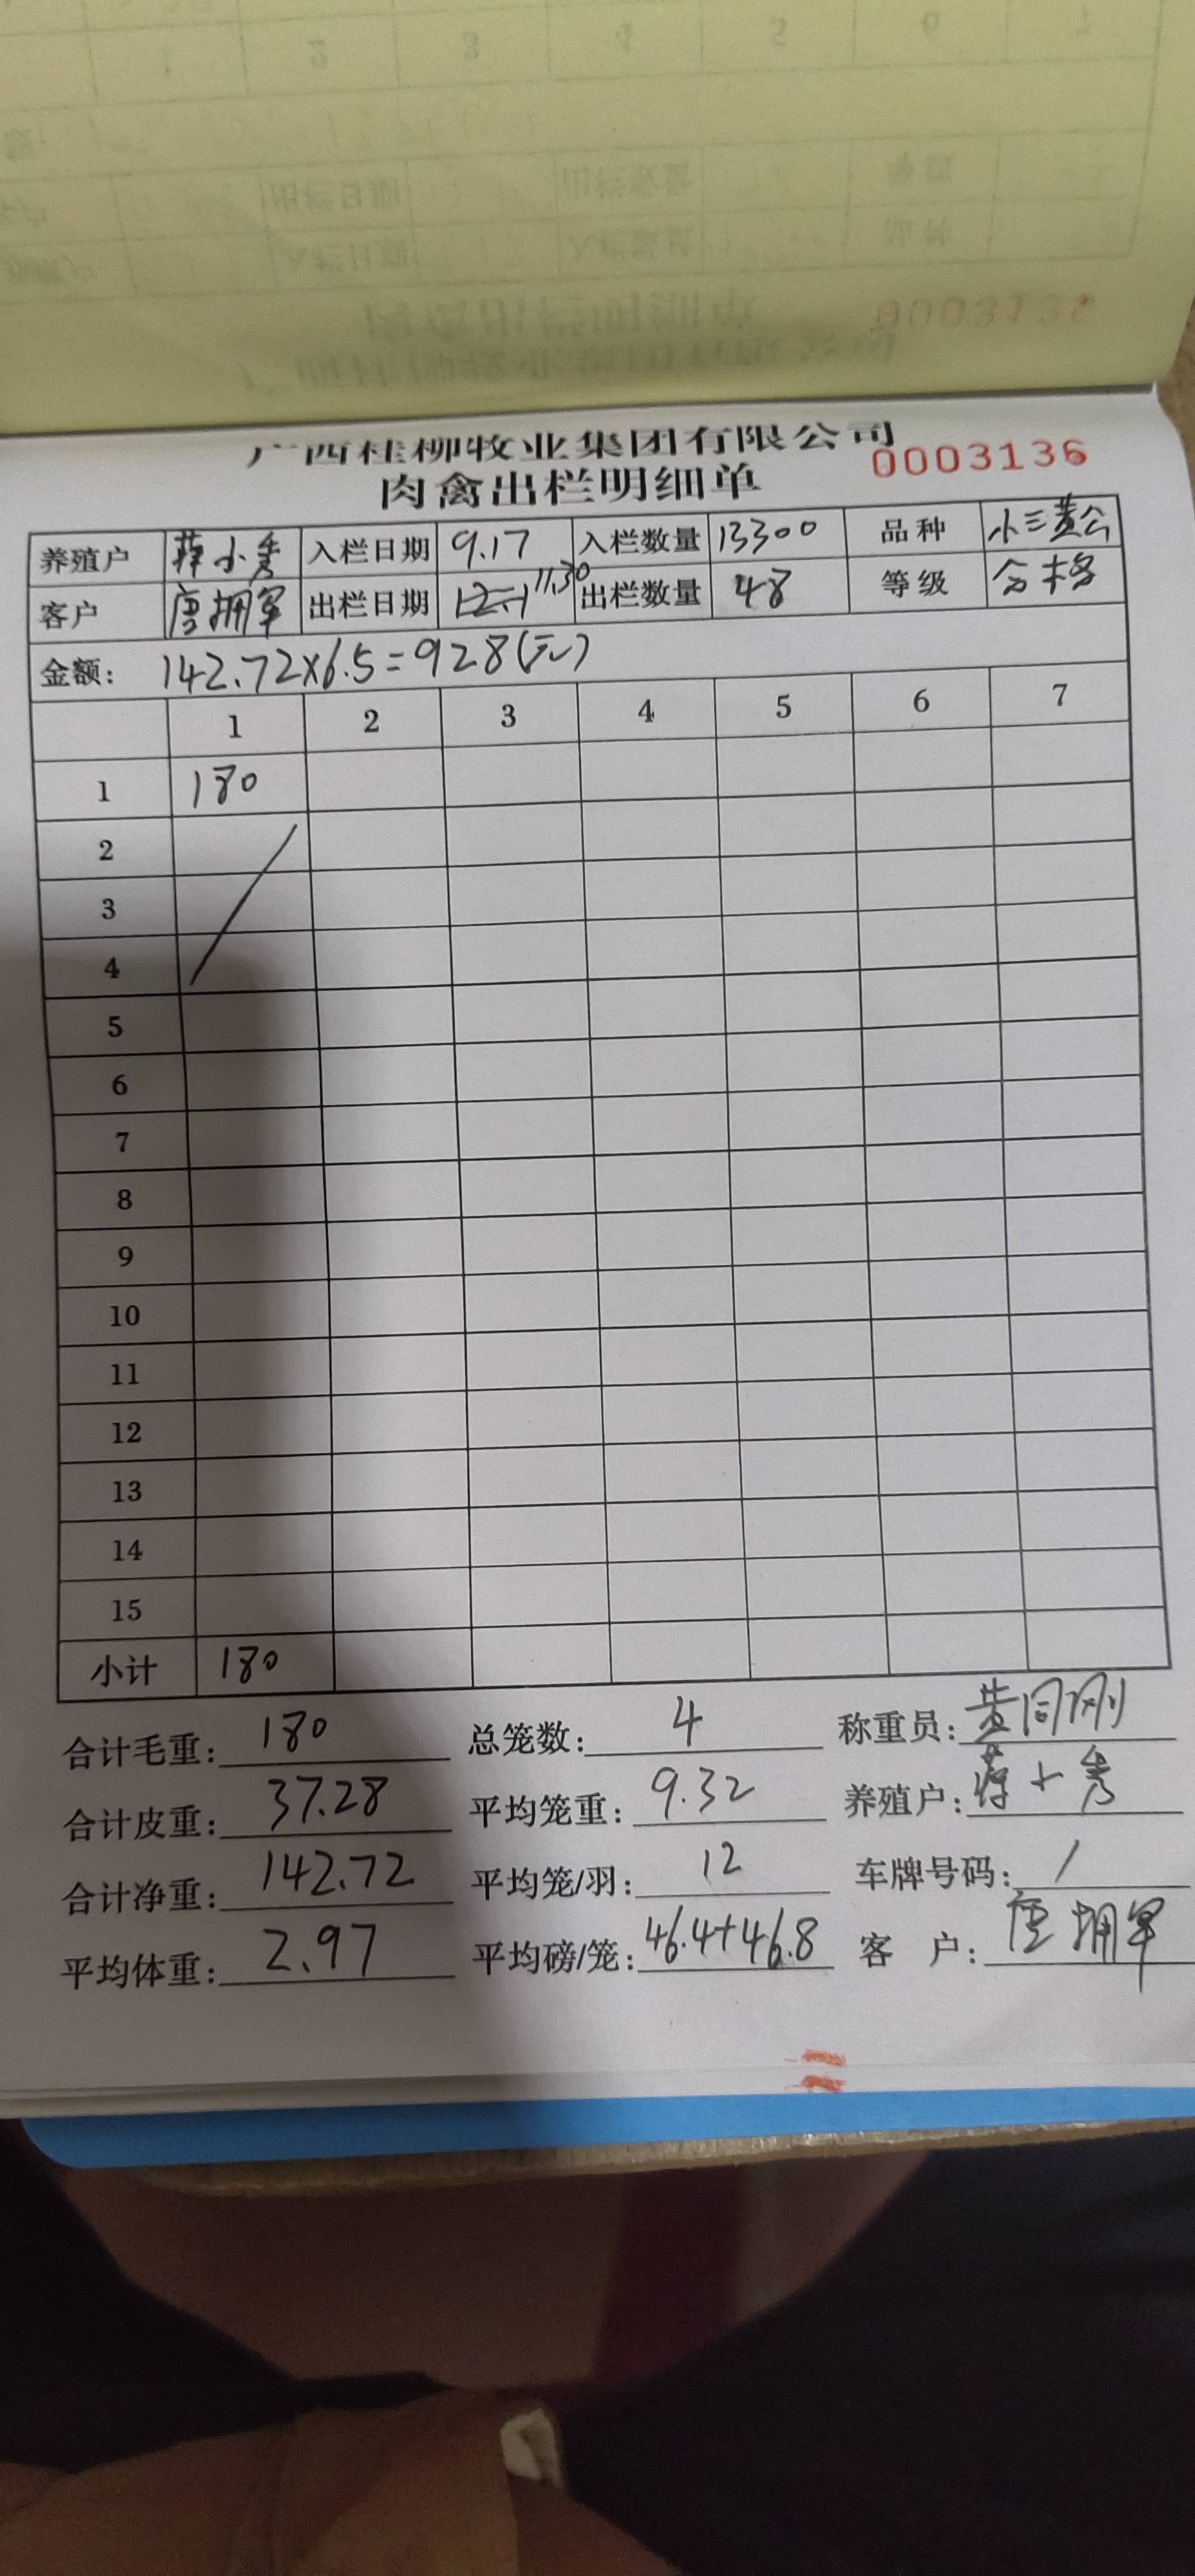 广西桂柳牧业集团有限公司
肉禽出栏明细单 0003136
养殖户 薛小秀 入栏日期 9.17 入栏数量 13300 品种 小三黄公
客户 唐拥军 出栏日期 12.1 11.30 出栏数量 48 等级 合格
金额: 142.72×6.5=928(元)
1 2 3 4 5 6 7
1 180
2
3
4
5
6
7
8
9
10
11
12
13
14
15
小计 180
合计毛重: 180 总笼数: 4 称重员: 黄同刚
合计皮重: 37.28 平均笼重: 9.32 养殖户: 薛小秀
合计净重: 142.72 平均笼/羽: 12 车牌号码: /
平均体重: 2.97 平均磅/笼: 46.4+46.8 客 户: 唐拥军